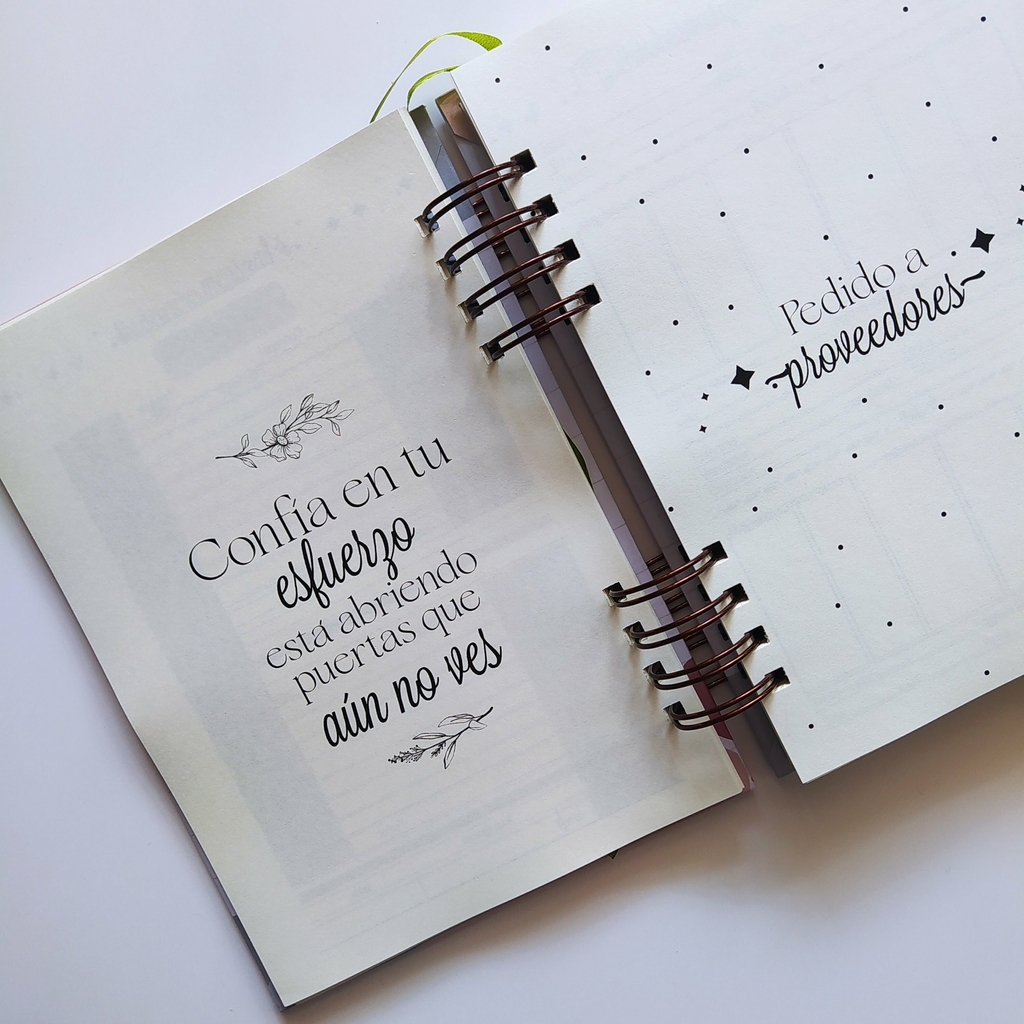 Confía en tu
esfuerzo
está abriendo
puertas que
aún no ves
Pedido a
proveedores